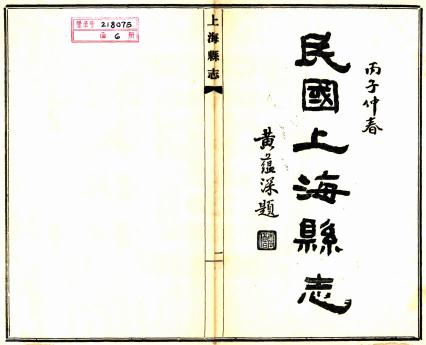 丙子仲春
民國上海縣志
黃蘊深題
上海縣志
一
登录号 218075
函 6 册